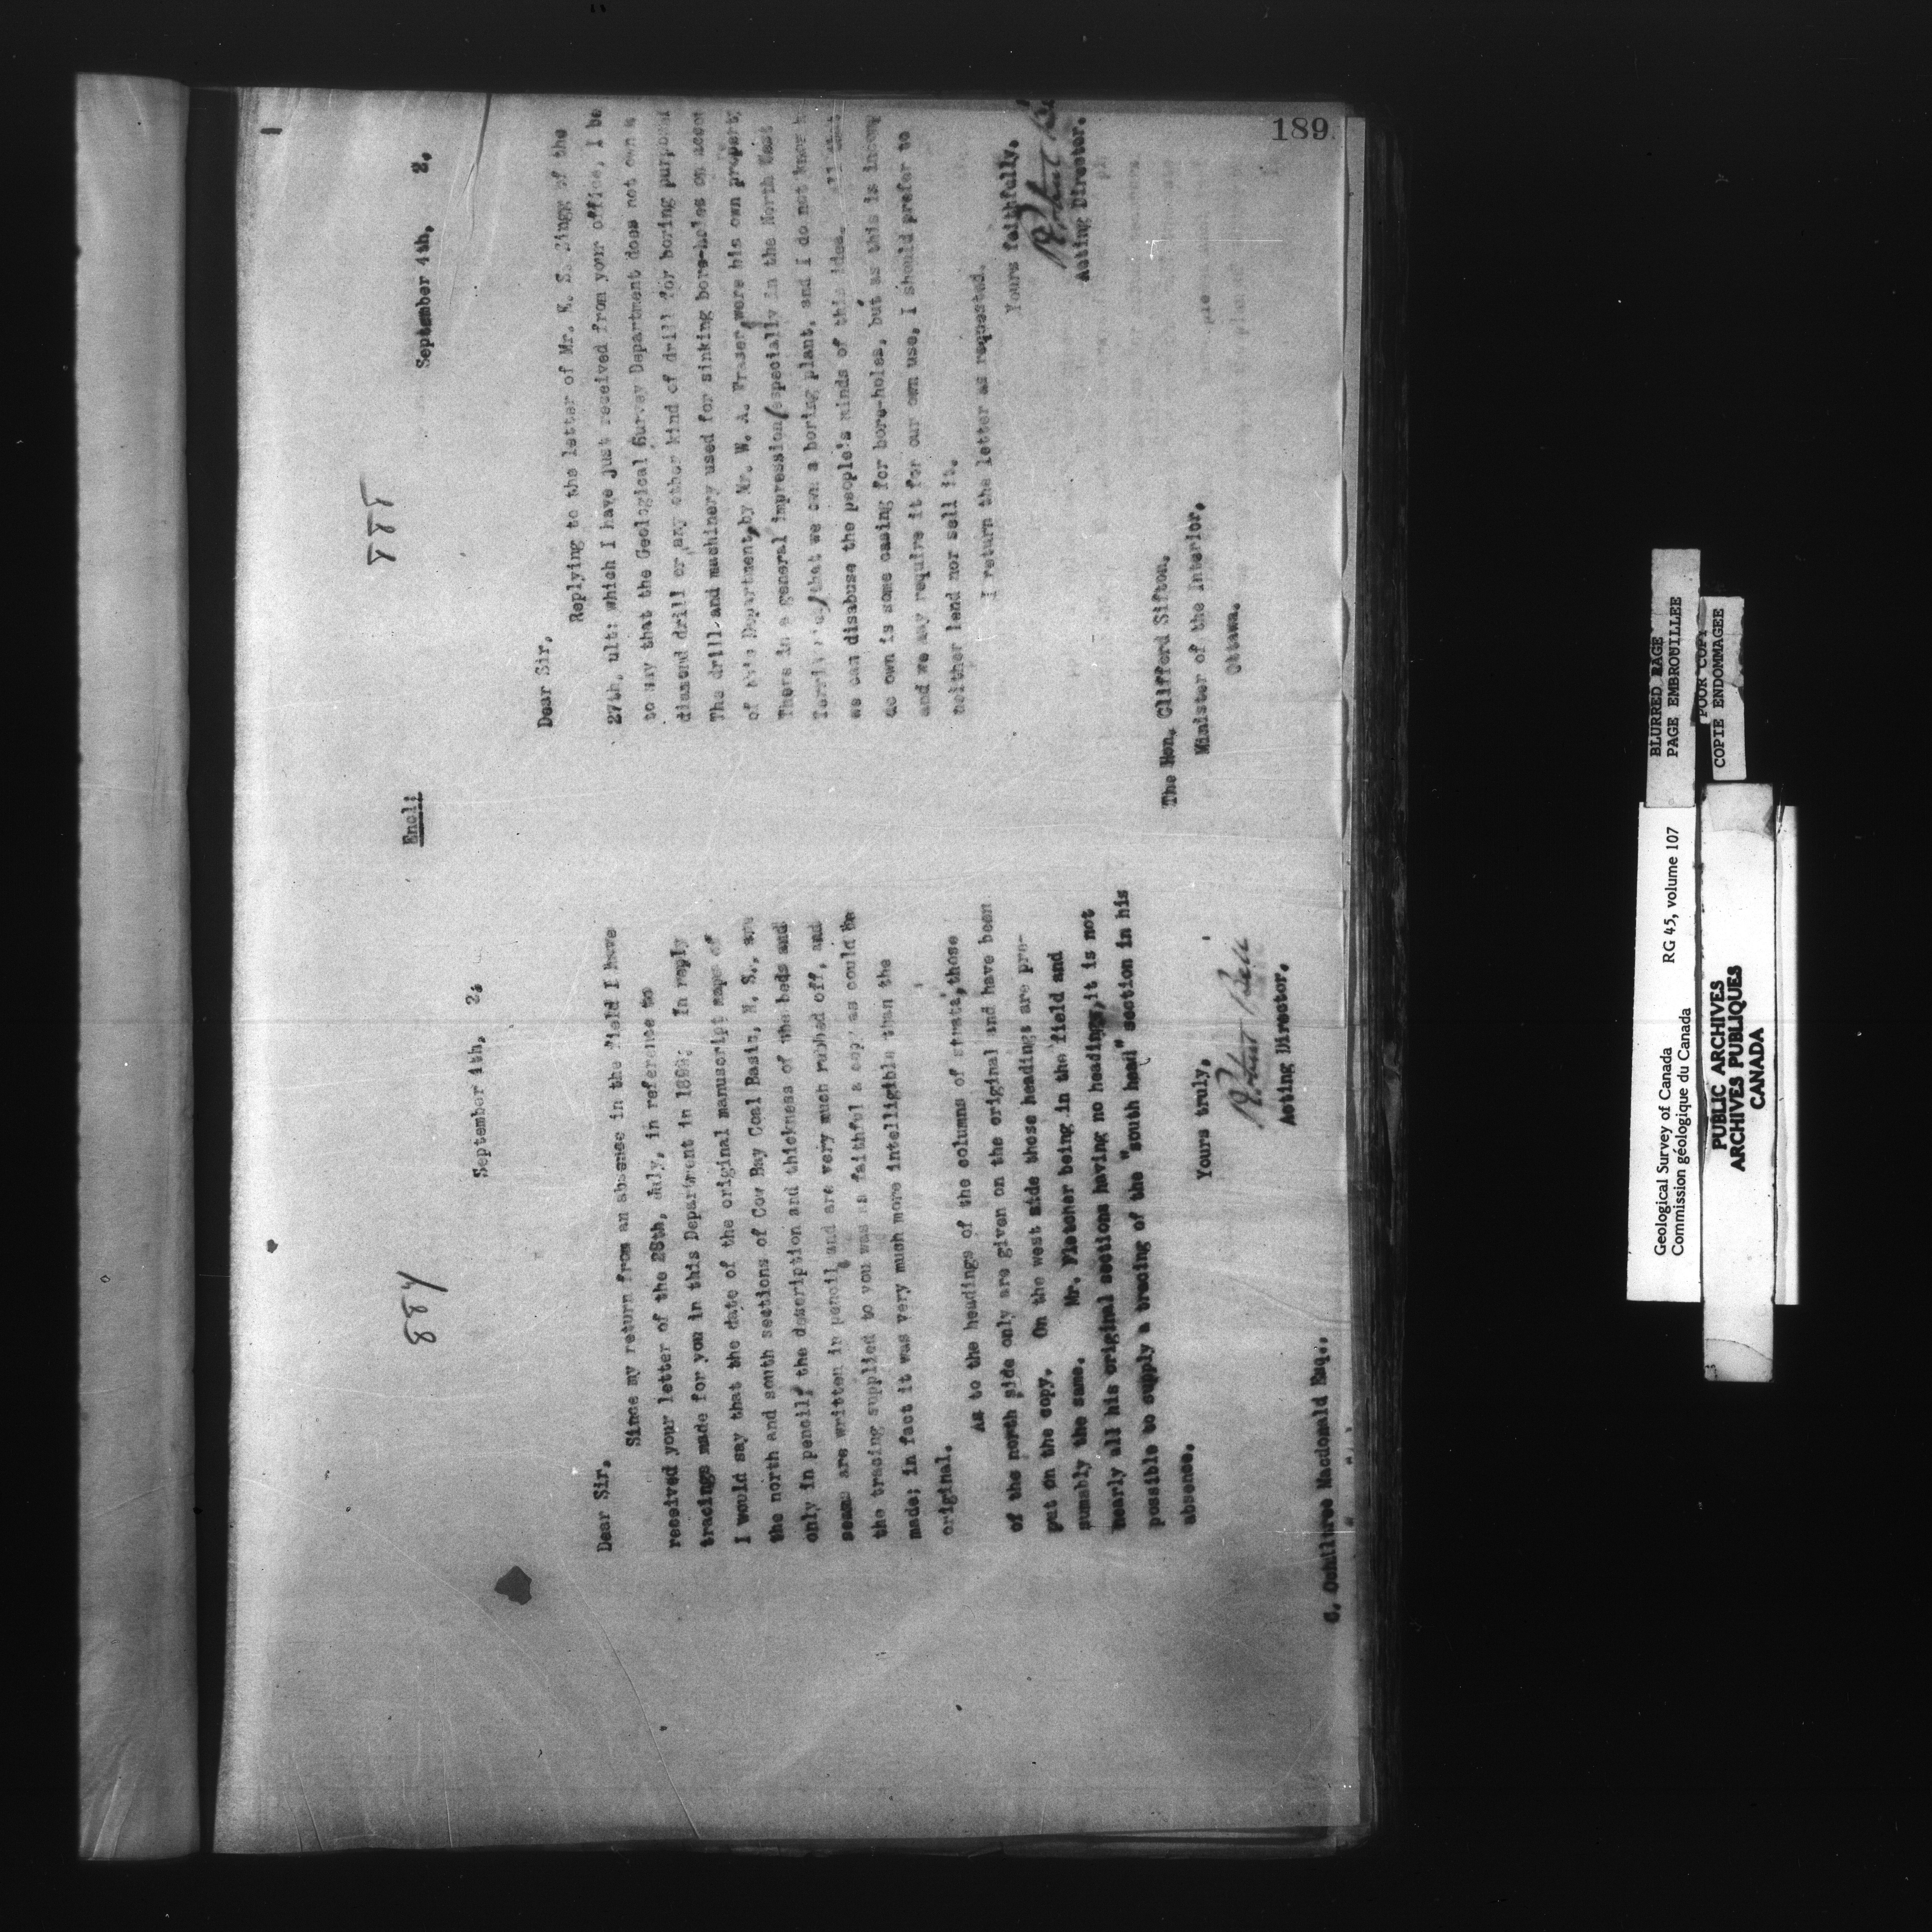 884
September 4th, 2.
Dear Sir,
Since my return from an absence in the field I have
received your letter of the 28th, July, in reference to
tracings made for you in this Department in 1899; In reply
I would say that the date of the original manuscript maps of
the north and south sections of Cow Bay Coal Basin, N. S., are
only in pencil, the description and thickness of the beds and
seams are written in pencil and are very much rubbed off, and
the tracing supplied to you was as faithful a copy as could be
made; in fact it was very much more intelligible than the
original.
As to the headings of the columns of strata, those
of the north side only are given on the original and have been
put on the copy. On the west side these headings are pre-
sumably the same. Mr. Fletcher being in the field and
nearly all his original sections having no headings, it is not
possible to supply a tracing of the "south head" section in his
absence.
Yours truly,
Robert Bell
Acting Director.
C. Ochiltree Macdonald Esq.,
Encl:
885
September 4th, 2.
Dear Sir,
Replying to the letter of Mr. of the
27th, ult: which I have just received from your office, I be
to say that the Geological Survey Department does not own a
diamond drill or any other kind of drill for boring purposes
The drill and machinery used for sinking bore-holes on accou
of this Department, by Mr. W. A. Fraser, were his own property
There is a general impression (especially in the North West
that we own a boring plant, and I do not know h
we can disabuse the people's minds of this idea.
do own is some casing for bore-holes, but as this is incom
and we may require it for our own use, I should prefer to
neither lend nor sell it.
I return the letter as requested.
Yours faithfully.
Robert Be
Acting Director.
The Hon. Clifford Sifton,
Minister of the Interior,
Ottawa.
189
BLURRED PAGE
PAGE EMBROUILLEE
POOR COPY
COPIE ENDOMMAGEE
Geological Survey of Canada RG 45, volume 107
Commission géologique du Canada
PUBLIC ARCHIVES
ARCHIVES PUBLIQUES
CANADA